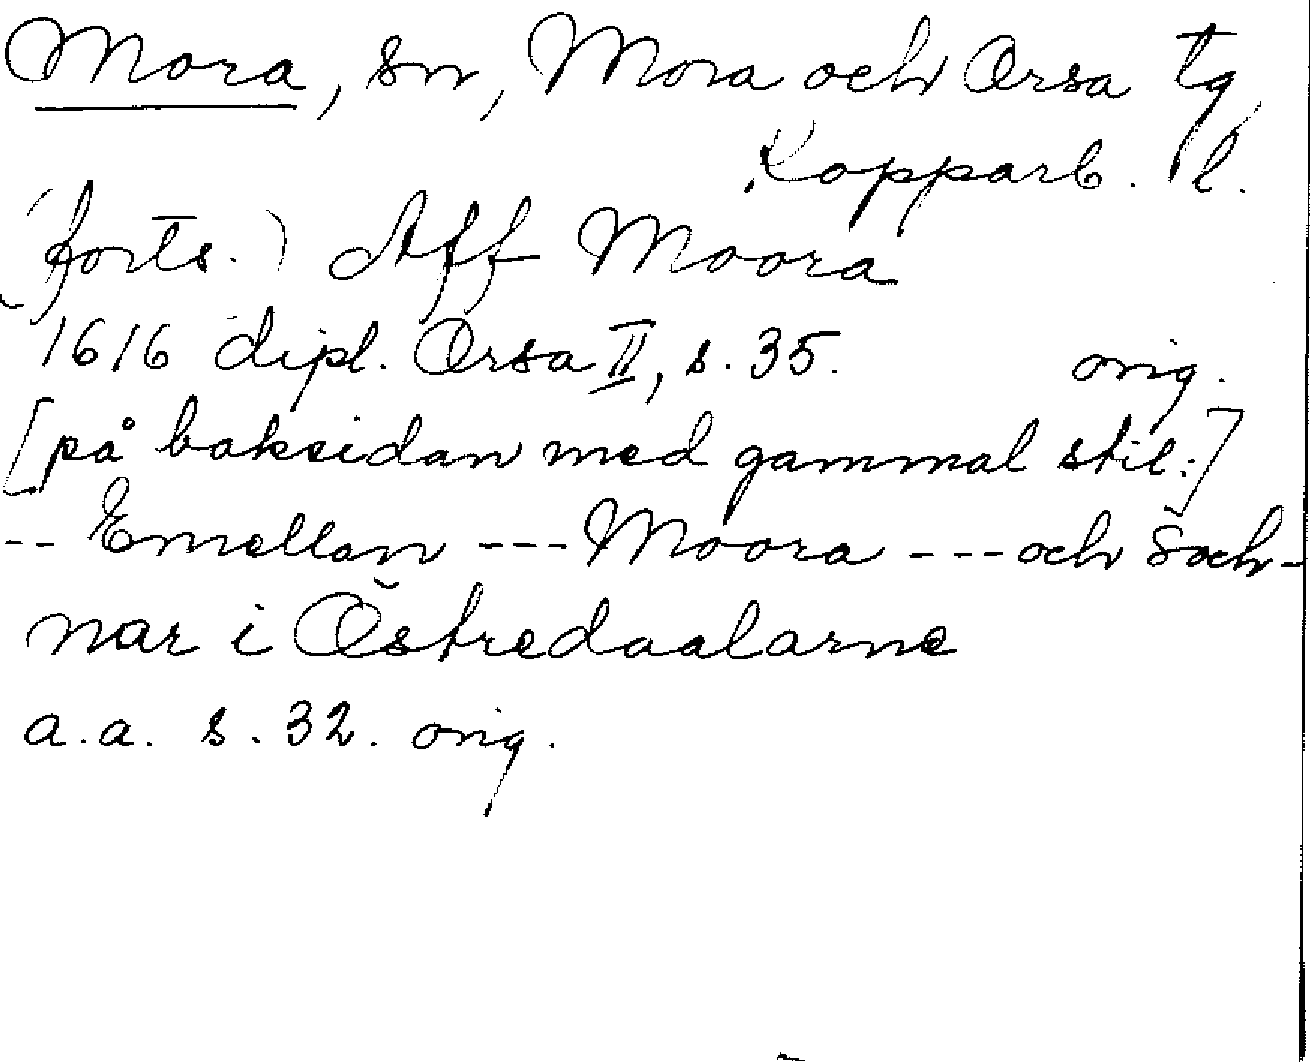 Mora, sn, Mora och Orsa tg
Kopparb. l.
(forts.) Aff Moora
1616 dipl. Orsa II, s. 35. orig.
[på baksidan med gammal stil:]
-- Emellan --- Moora --- och Soch-
nar i Östredaalarne
a.a. s. 32. orig.